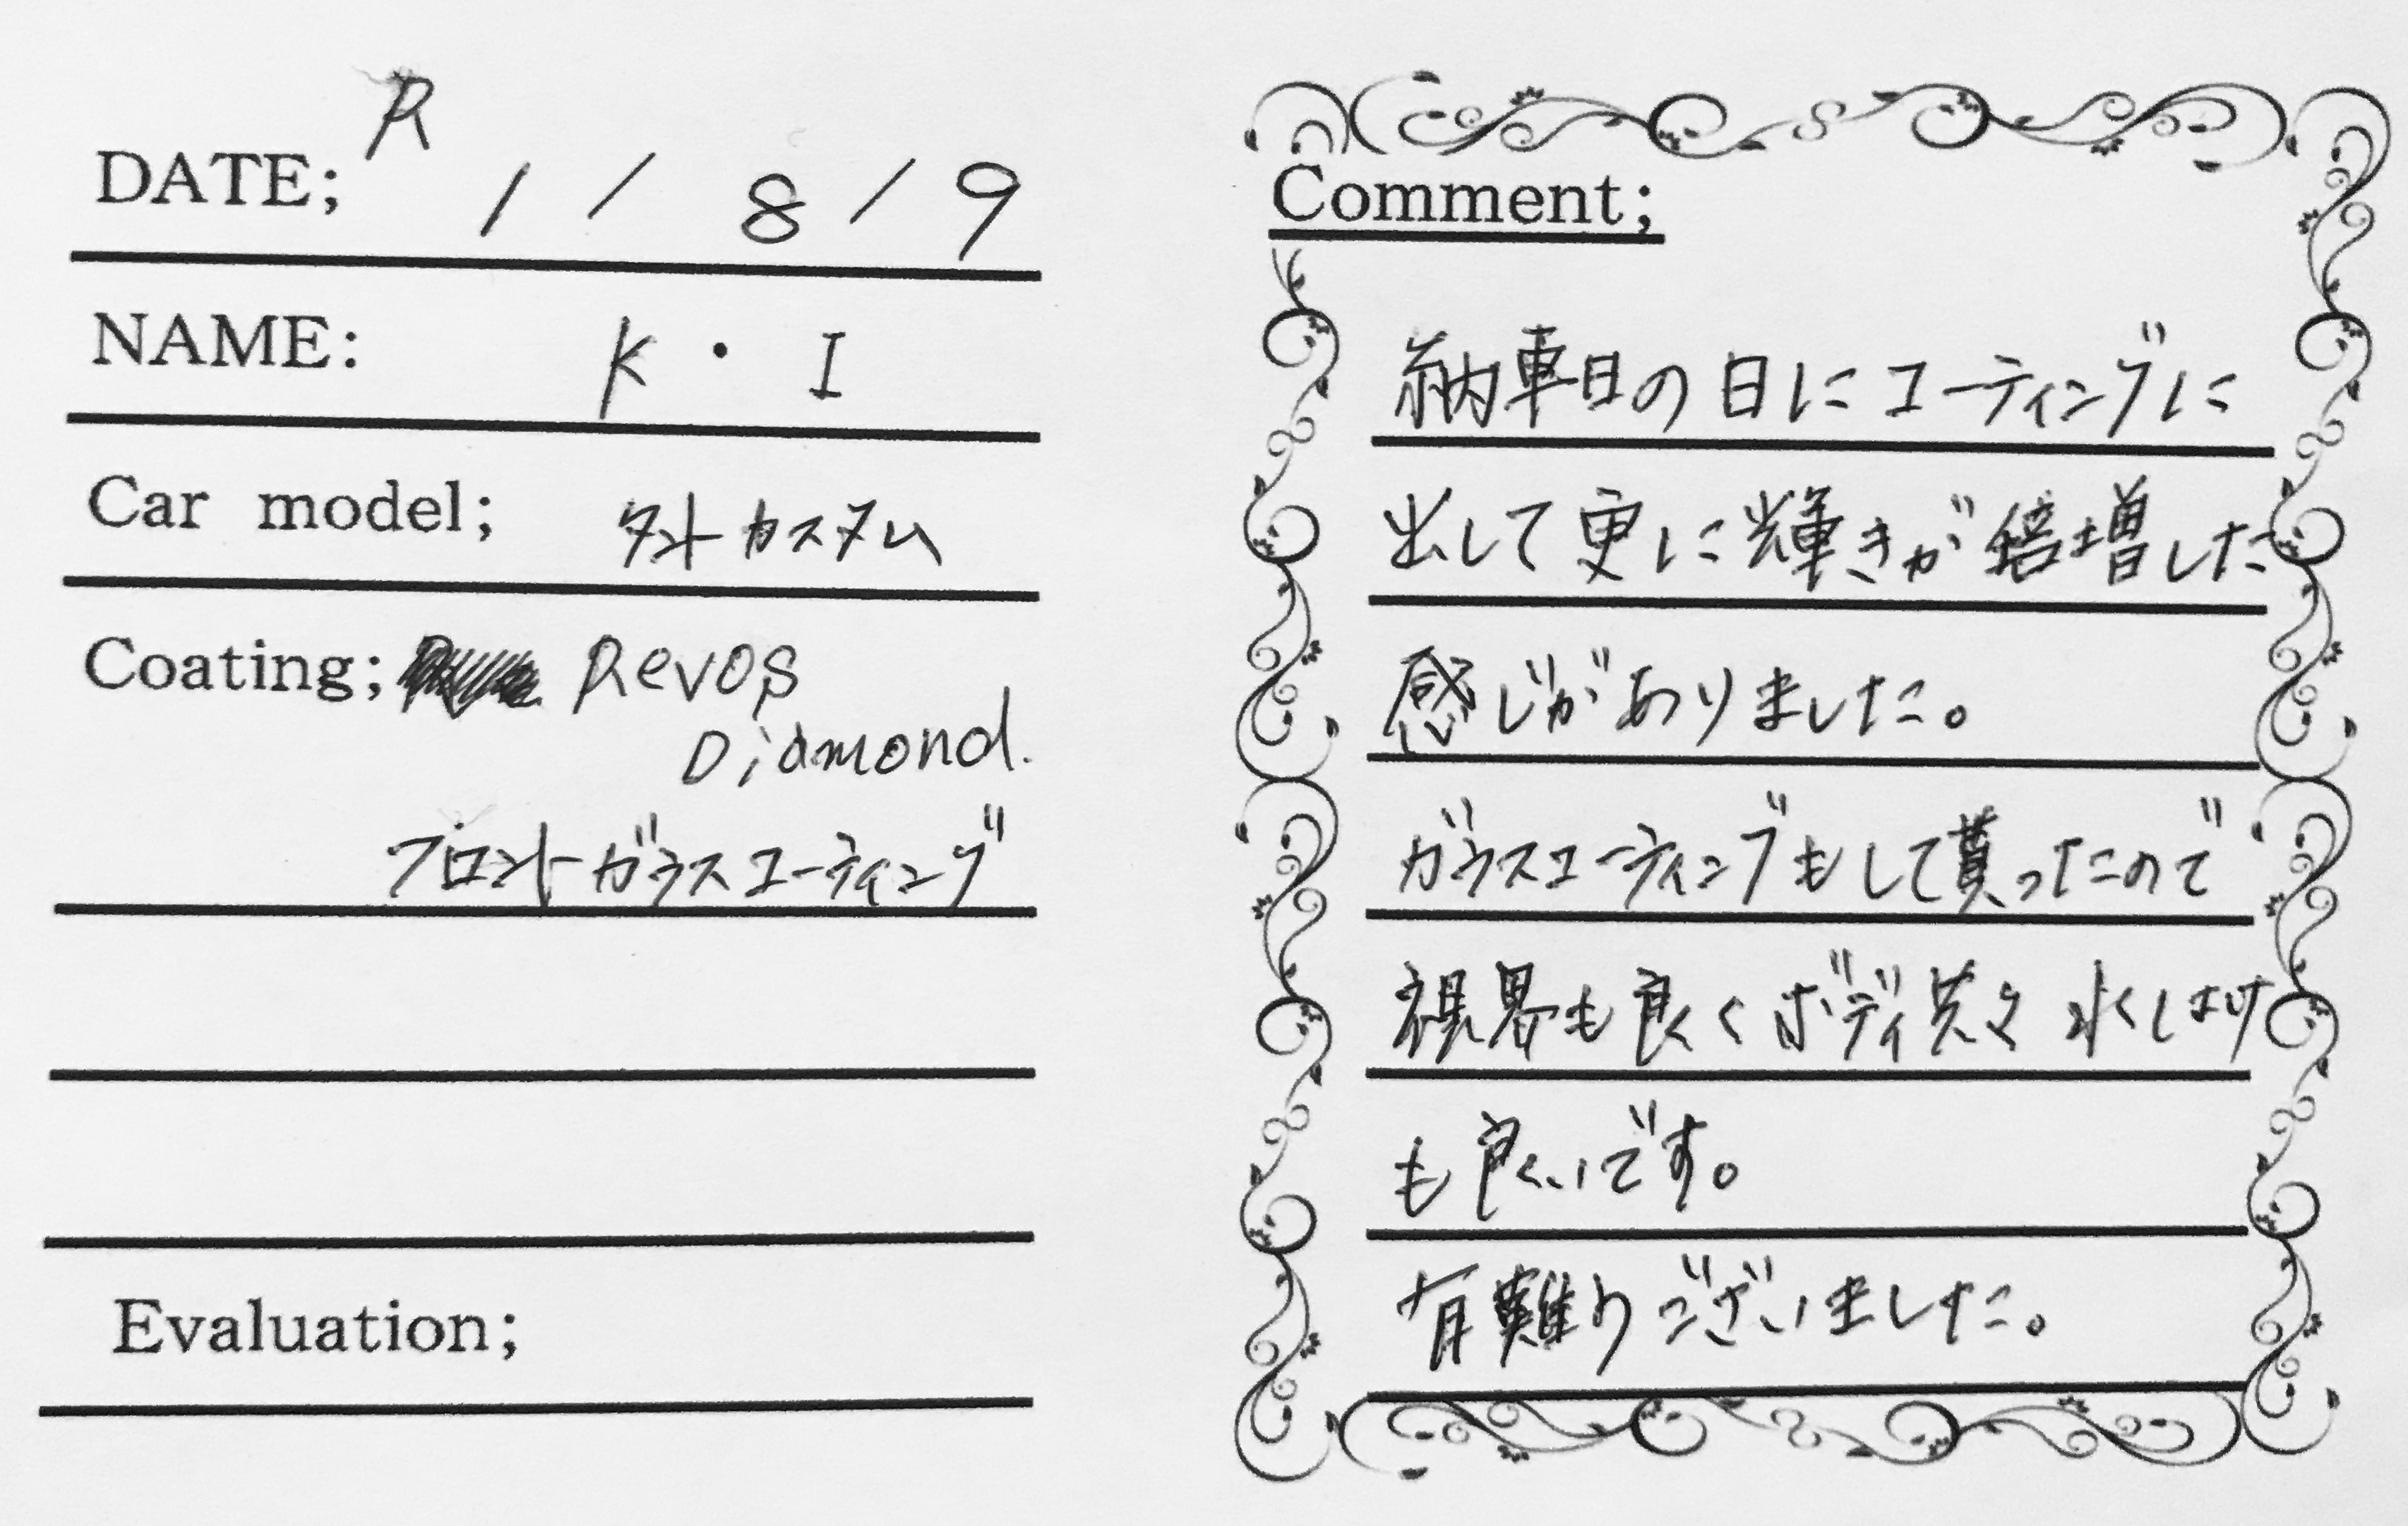 R
DATE; 1 / 8 / 9
NAME: K・I
Car model; タントカスタム
Coating; Revos
Diamond.
フロントガラスコーティング
Evaluation;
Comment;
納車日の日にコーティングに
出して更に輝きが倍増した
感じがありました。
ガラスコーティングもして貰ったので
視界も良くボディ共々水しはけ
も良いです。
有難うございました。